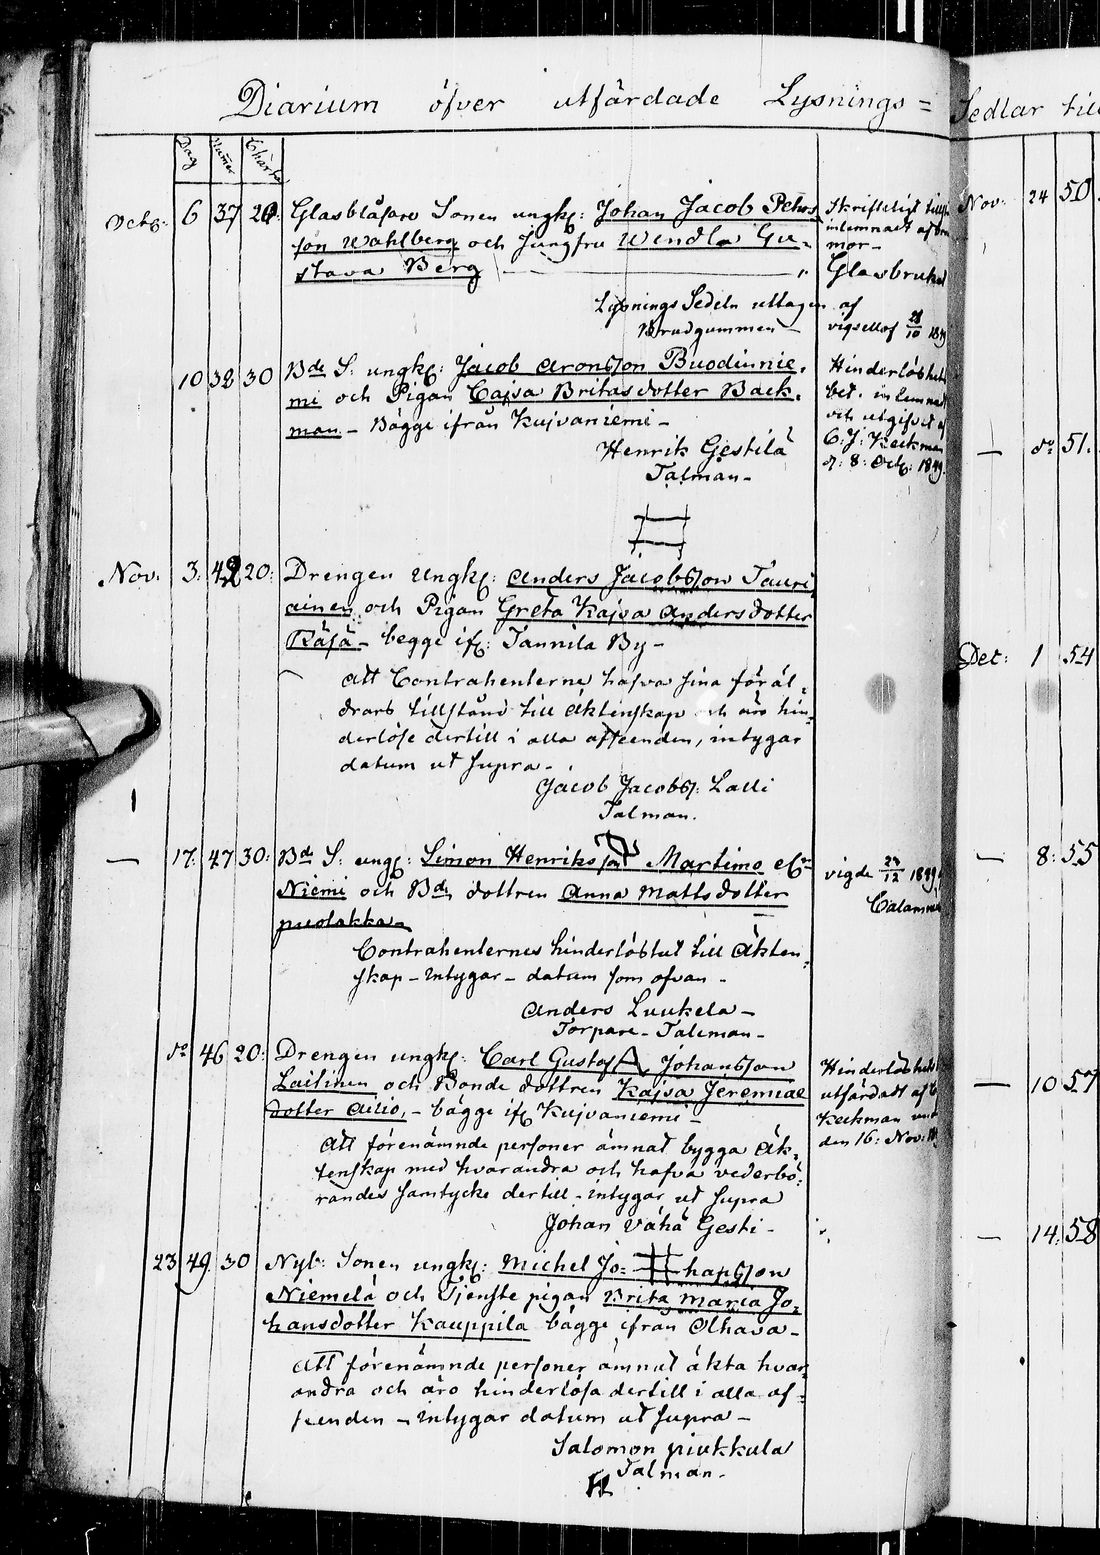 Diarium öfver utfärdade Lysnings = Sedlar till
Dag Numer Charta
Octg: 6 37 20: Glasblåsare Sonen ungk: Johan Jacob Pehrs
son Wahlberg och Jungfru Wendla Gu-
stava Berg
Lysnings Sedeln uttagen af
Brudgummen
Skriftligt
inlemnadt af
mor
Glasbruket
vigsell af 28/10 189
10 38 30 Bde S: ungk: Jacob Aronsson Buodinnie,
mi och Pigan Cajsa Britas dotter Back,
man - Bägge ifrån Kuivaniemi -
Henrik Gestilä
Talman -
Hinderlöshets
bet. inlemnat
och utgifvet af
C: J: Keckman
d: 8: Octb: 1849.
Nov. 3: 42 20: Drengen Ungk: Anders Jacobsson Tauri
ainen och Pigan Greta Kajsa Andersdotter
Räsä - begge ifr: Tannila By -
att Contrahenterne hafva sina föräl-
drars tillstånd till äktenskap och äro hin-
derlöse dertill i alla afseenden, intygar
datum ut supra -
Jacob Jacobss: Lalli
Talman.
— 17: 47 30: Bd S: ungk: Simon Henriksson Martimo
Niemi och Bde dottren Anna Mattsdotter
puolakka
vigde 27/12 1849
Contrahenternes hinderlöshet till Äkten-
skap - intygar - datum som ofvan -
Anders Luukela -
Torpare - Taleman -
do 46 20: Drengen ungk: Carl Gustaf Johansson
Laitinen och Bonde dottren Kajsa Jeremiae
dotter Airio, - bägge ifr Kuivaniemi -
Hinderlöshets
utfärdadt af
Keckman
den 16: Nov:
Att förenämnde personer ämnat bygga äk-
tenskap med hvarandra och hafva vederbö-
randes samtycke dertill - intygar ut supra
Johan Vähä Gesti -
23 49 30 Nyb: Sonen ungk: Michel Jo- hansson
Niemelä och Tjenste pigan Brita Maria Jo-
hansdotter Kauppila bägge ifrån Olhava -
att förenämnde personer ämnat äkta hvar
andra och äro hinderlösa dertill i alla af-
seenden - intygar datum ut supra -
Salomon piukkula
Talman -
Nov. 24 50
— do 51.
Dec: 1 54
— 8: 55
— 10 57
— 14: 58